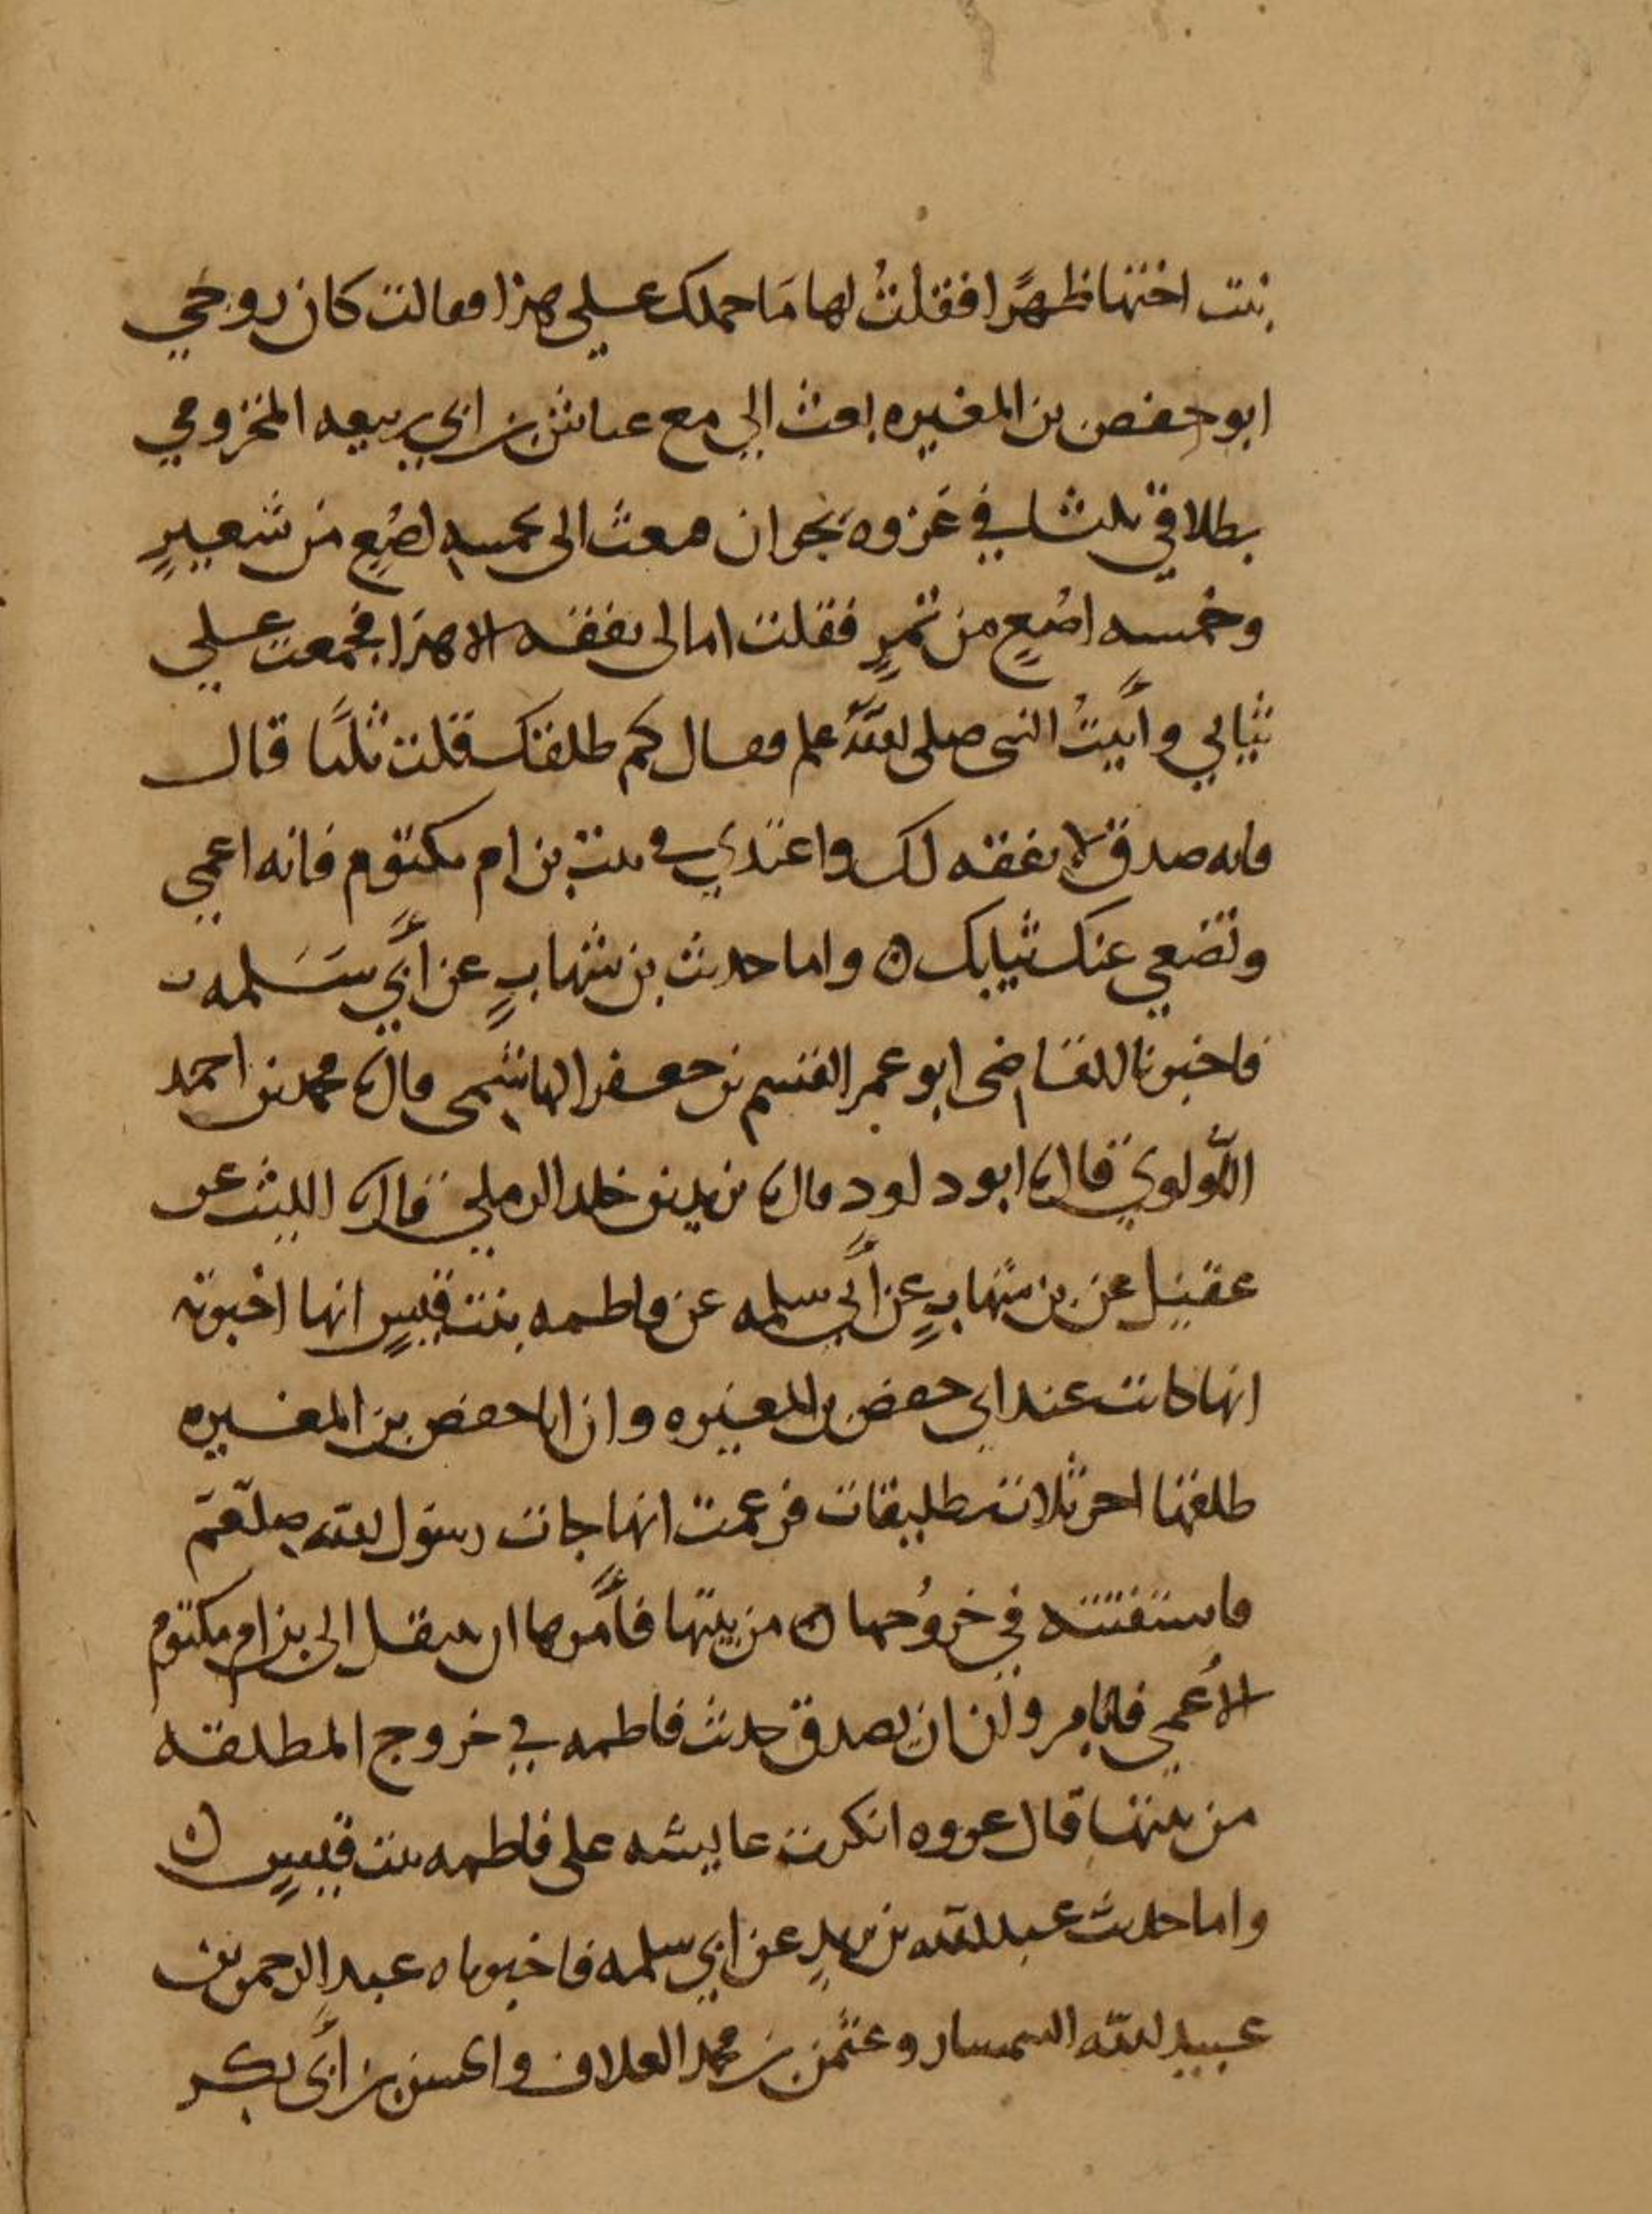 بنت اختها ظهرًا فقلتُ لها مَا حملك على هذا فقالت كان زوجي
ابو حفص بن المغيره بعث الي مع عياش بن ابي ربيعه المخزومي
بطلاقي ثلثا في غَزوه نجران فبعث الى بخمسه اصُعٍ من شعيرٍ
وخمسه اصُعٍ من تمرٍ فقلت امالى نفقه الا هذا فجمعت على
ثيابي وأتيتُ النبى صلى الله علم فقال كم طلقك قلت ثلثًا قال
فانه صدق لا نفقه لك واعتدي في بيت بن ام مكتوم فانه اعمى
وتضعي عنك ثيابك ن واما حديث بن شهابٍ عن أبي سَلمه
فاخبرنا القاضى ابو عمر القسم بن جعفر الهاشمى قال نا محمد بن احمد
اللولوي قال نا ابو داود قال نا يزيد بن خلد الرملي قال نا الليث عن
عقيل عن بن شهابٍ عن أبي سلمه عن فاطمه بنت قيسٍ انها اخبرته
انها كانت عند ابي حفص بن المغيره وان ابا حفص بن المغيره
طلقها اخر ثلاث تطليقات فزعمت انها جات رسول الله صلعم
فاستفتته في خروُجها ن من بيتها فأمرها ان تنتقل الى بن ام مكتوم
الأعمى فابا مروان ان يصدق حديث فاطمه في خروج المطلقه
من بيتها قال عروه انكرت عايشه على فاطمه بنت قيسٍ ن
واما حديث عبد الله بن يزيدٍ عن ابي سلمه فاخبرناه عبد الرحمن بن
عبيد الله السمسار وعثمن بن محمد العلاف والحسن بن أبى بكر